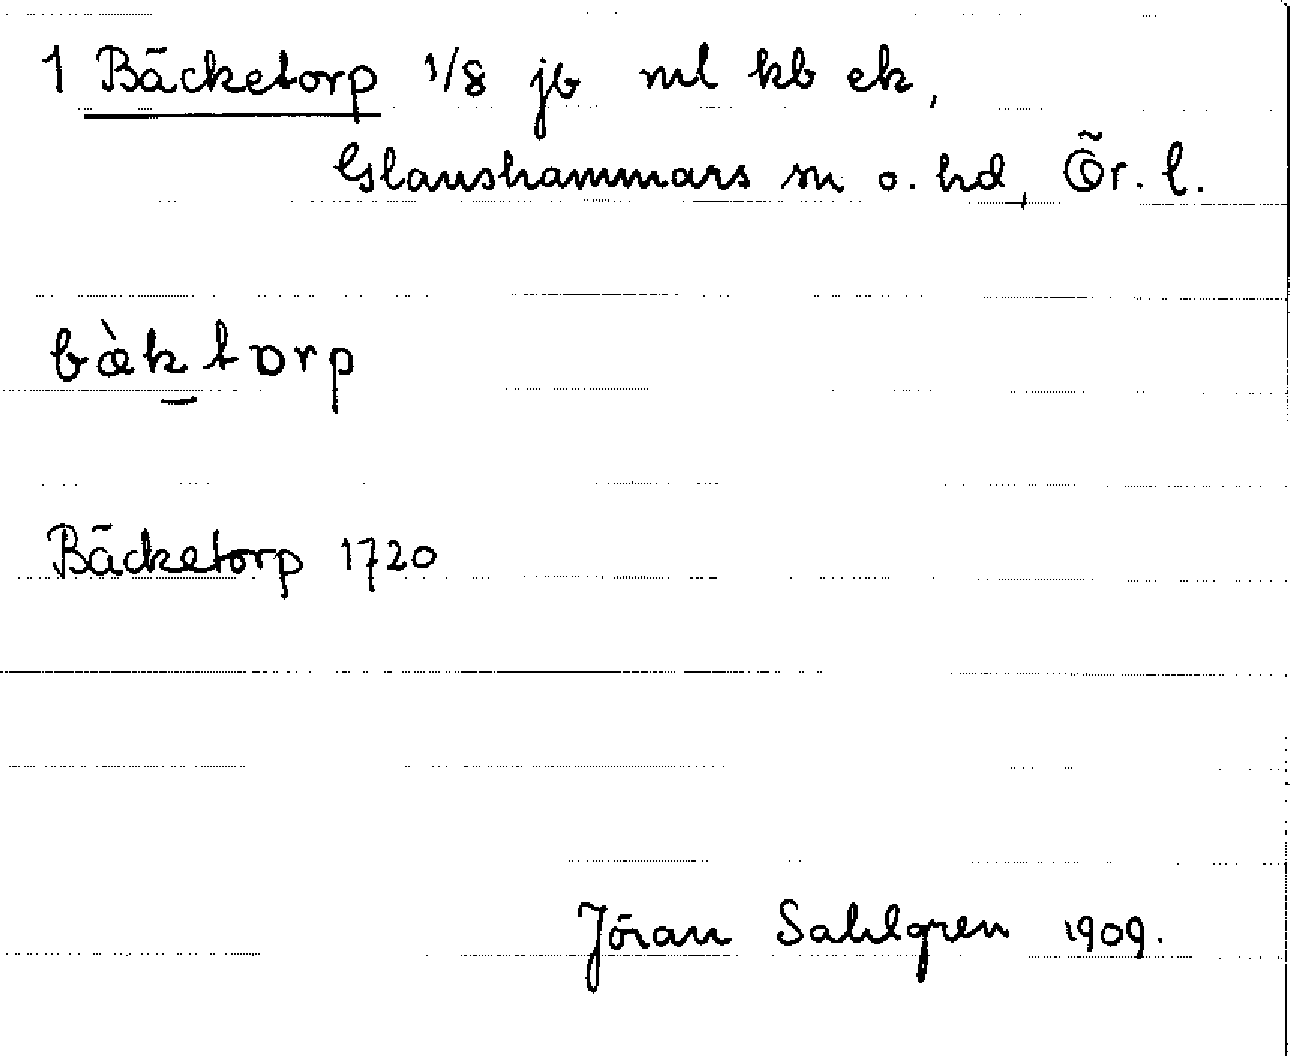 1 Bäcketorp 1/8 jb ml kb ek,
Glanshammars sn o. hd, Ör. l.
bæ̀k torp
Bäcketorp 1720
Jöran Sahlgren 1909.